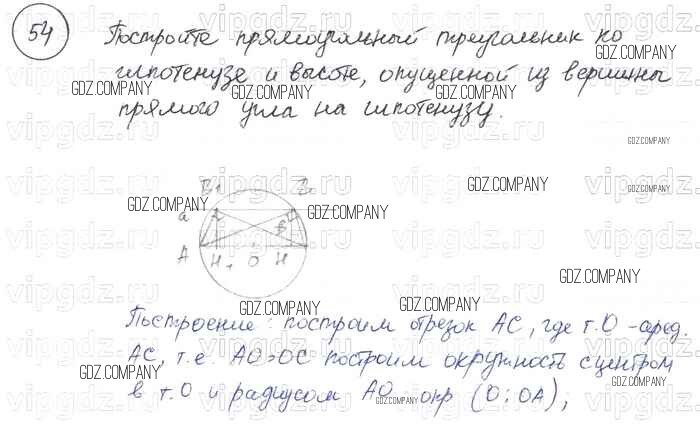 54 Постройте прямоугольный треугольник по
гипотенузе и высоте, опущенной из вершины
прямого угла на гипотенузу.
B₁ B₂
a
A H₁ O H
Построение: построим отрезок AC, где т.O - серед.
AC, т.е. AO=OC построим окружность с центром
в т.O и радиусом AO окр (O; OA),
vipgdz.ru
GDZ.COMPANY